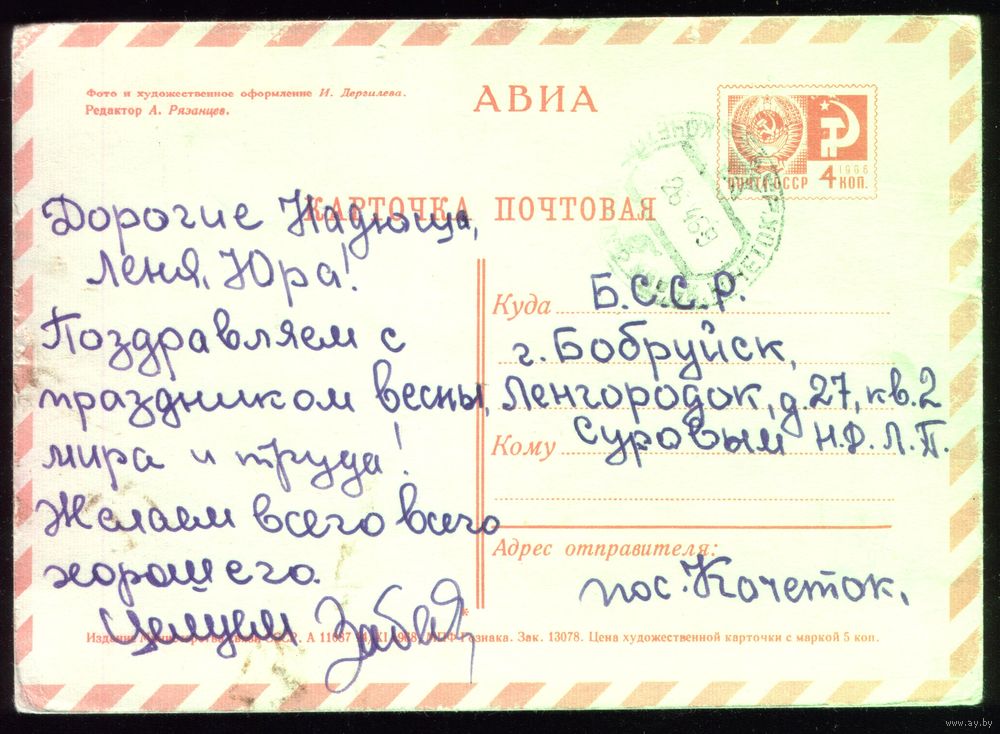 Фото и художественное оформление И. Дергилева.
Редактор А. Рязанцев.
АВИА
ПОЧТА СССР
1966
4 КОП.
КАРТОЧКА ПОЧТОВАЯ
26 4 69
КОЧЕТОК
Дорогие Надюша,
Леня, Юра!
Поздравляем с
праздником весны,
мира и труда!
Желаем всего всего
хорошего.
Целуем
Куда
Б.С.С.Р.
г. Бобруйск,
Ленгородок, д.27, кв.2
Кому
Суровым Н.Ф.Л.П.
Адрес отправителя:
пос. Кочеток.
Издание Министерства связи СССР. А 11087 XI 1968. МПФ Гознака. Зак. 13078. Цена художественной карточки с маркой 5 коп.
www.ay.by